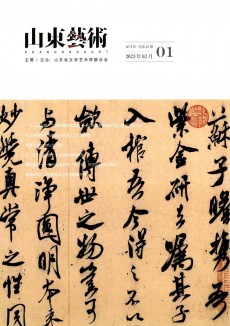 山東藝術
SHANDONG ART
主管 / 主办：山东省文学艺术界联合会
2023年02月
01
蘇子瞻攜吾
紫金研去嘱其子
入棺吾今得之不以
斂傳世之物豈可
与清淨圓明本来
妙覺真常之性同